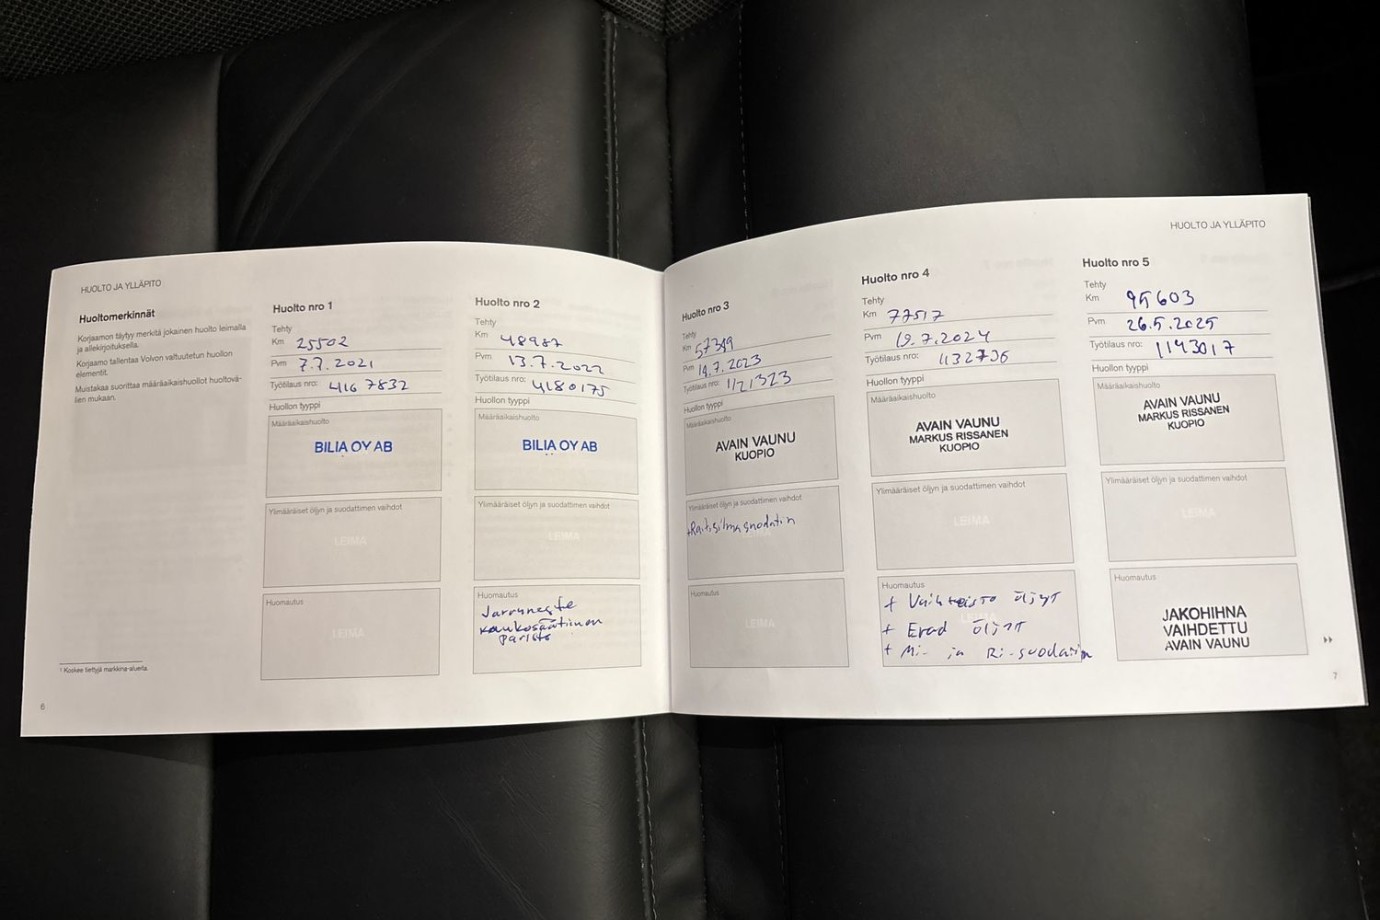 HUOLTO JA YLLÄPITO
Huoltomerkinnät
Korjaamon täytyy merkitä jokainen huolto leimalla
ja allekirjoituksella.
Korjaamo tallentaa Volvon valtuutetun huollon
elementit.
Muistakaa suorittaa määräaikaishuollot huoltovä-
lien mukaan.
¹ Koskee tiettyjä markkina-alueita.
6
Huolto nro 1
Tehty
Km 25502
Pvm 7.7.2021
Työtilaus nro: 4167832
Huollon tyyppi
Määräaikaishuolto
BILIA OY AB
Ylimääräiset öljyn ja suodattimen vaihdot
LEIMA
Huomautus
LEIMA
Huolto nro 2
Tehty
Km 48987
Pvm 13.7.2022
Työtilaus nro: 4180175
Huollon tyyppi
Määräaikaishuolto
BILIA OY AB
Ylimääräiset öljyn ja suodattimen vaihdot
LEIMA
Huomautus
Jarruneste
kaukosäätimen
paristo
Huolto nro 3
Tehty
Km 57399
Pvm 19.7.2023
Työtilaus nro: 1121323
Huollon tyyppi
Määräaikaishuolto
AVAIN VAUNU
KUOPIO
Ylimääräiset öljyn ja suodattimen vaihdot
+Raitisilmasuodatin
Huomautus
LEIMA
HUOLTO JA YLLÄPITO
Huolto nro 4
Tehty
Km 77517
Pvm 19.7.2024
Työtilaus nro: 1132736
Huollon tyyppi
Määräaikaishuolto
AVAIN VAUNU
MARKUS RISSANEN
KUOPIO
Ylimääräiset öljyn ja suodattimen vaihdot
LEIMA
Huomautus
+ Vaihteisto öljyt
+ öljyt
+ Mi- ja Ri-suodatin
Huolto nro 5
Tehty
Km 95603
Pvm 26.5.2025
Työtilaus nro: 1143017
Huollon tyyppi
Määräaikaishuolto
AVAIN VAUNU
MARKUS RISSANEN
KUOPIO
Ylimääräiset öljyn ja suodattimen vaihdot
LEIMA
Huomautus
JAKOHIHNA
VAIHDETTU
AVAIN VAUNU
7